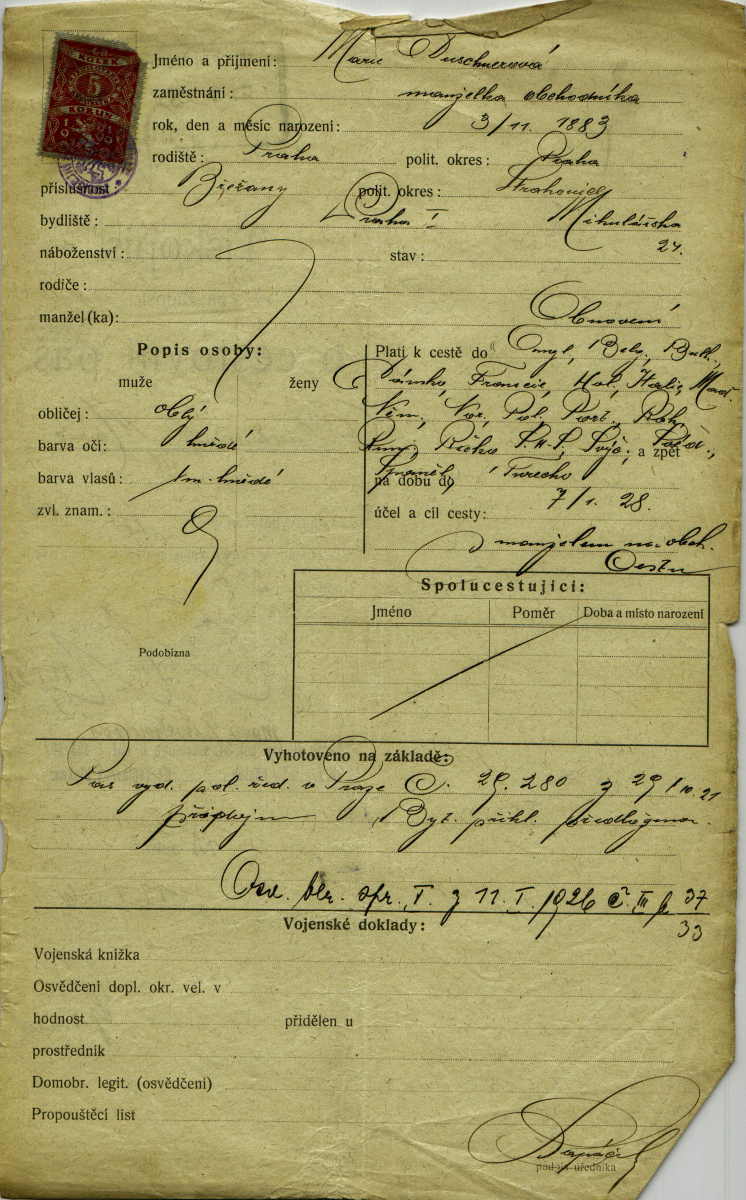 KOLEK
5
KORUN
Jméno a přijmení: Marie Duschnerová
zaměstnání: manželka obchodníka
rok, den a měsíc narození: 3/11. 1883
rodiště: Praha polit. okres: Praha
příslušnost: Břežany polit. okres:
bydliště: Praha I Mikulášská
24.
náboženství: stav:
rodiče:
manžel(ka): Obnovení
Popis osoby: Platí k cestě do Engl., Belg., Bulh.,
muže ženy Dánsko, Francie, Hol., Italie, Maď.
obličej: oblý Něm., Nor., Pol., Port., Rak.,
barva očí: hnědé Rum., Řecko, Švýc., a zpět
barva vlasů: tm. hnědé Španěl., Turecko
na dobu do 7/1. 28.
zvl. znam.: účel a cíl cesty:
s manželem na obch.
cestu
Spolucestující:
Jméno Poměr Doba a místo narození
Podobizna
Vyhotoveno na základě:
Pas vyd. pol. řed. v Praze č. 29.280 z 29/10.21
Byt. přihl. předložena.
Osv. ber. spr. I. z 11. I. 1926 č. III 37
33
Vojenské doklady:
Vojenská knížka
Osvědčení dopl. okr. vel. v
hodnost přidělen u
prostředník
Domobr. legit. (osvědčení)
Propouštěcí list
podpis úředníka